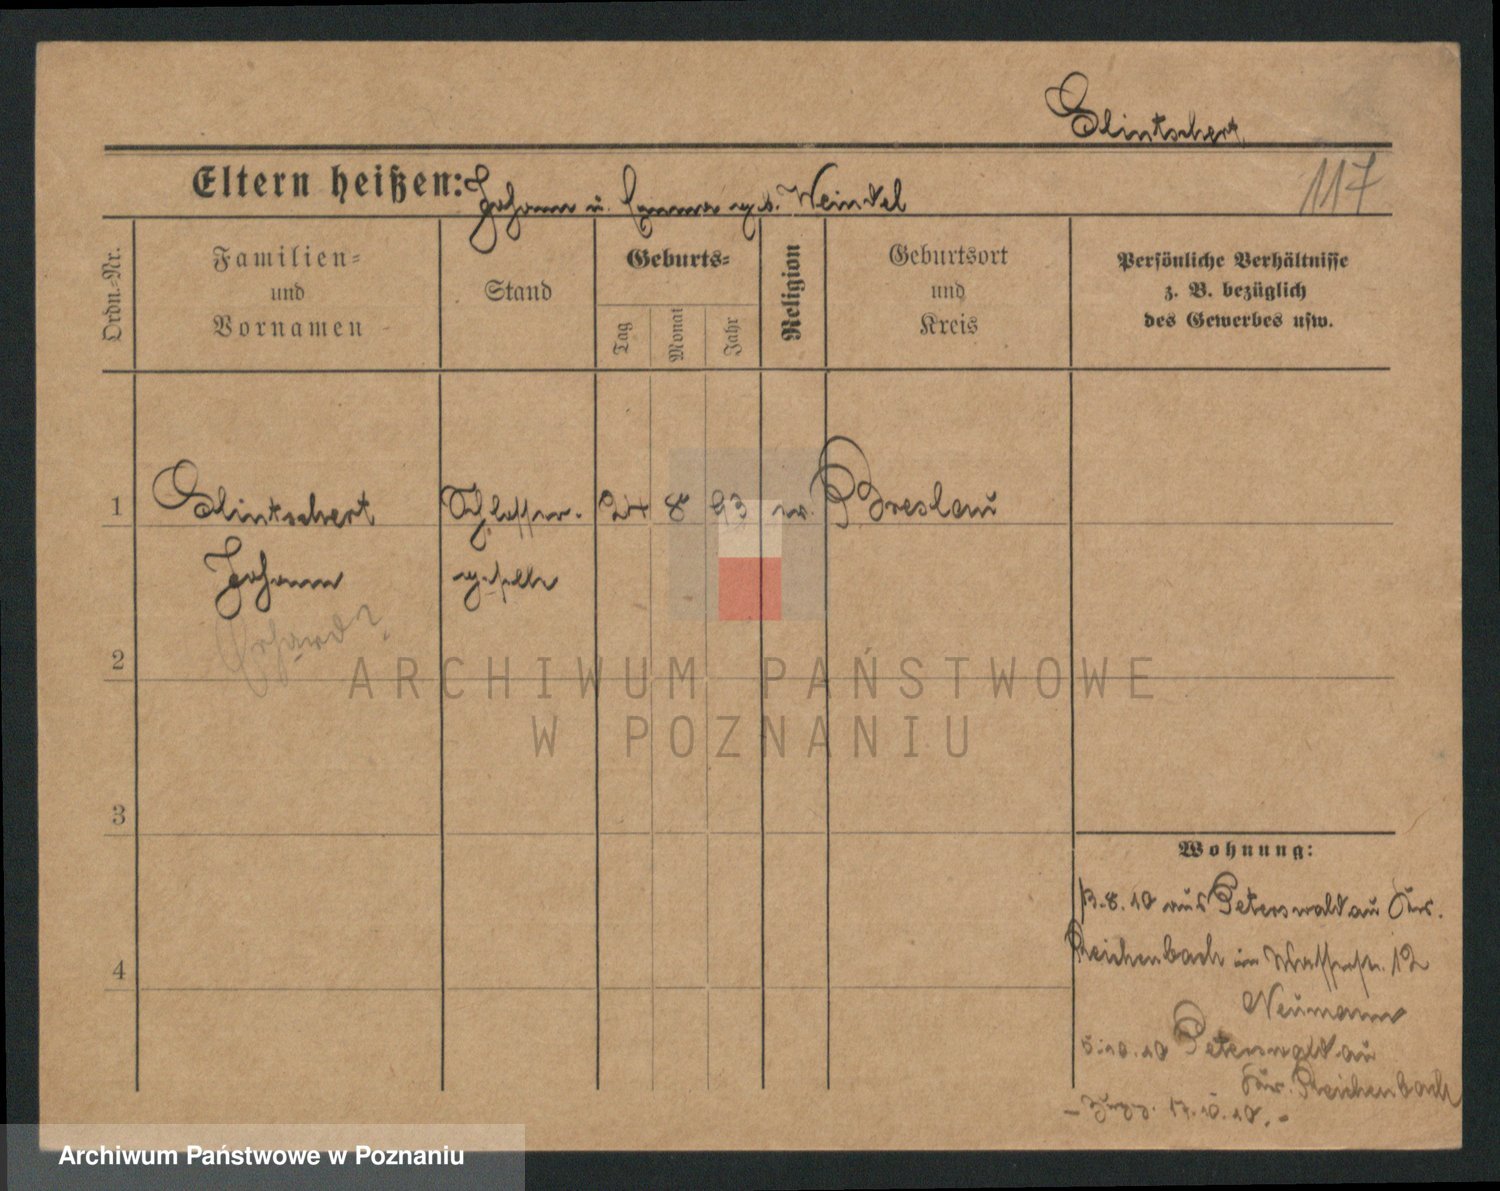 Glintschert
Eltern heißen: Johann u. Emma geb. Weindel
117
Ordn.=Nr.
Familien=
und
Vornamen
Stand
Geburts=
Tag
Monat
Jahr
Religion
Geburtsort
und
Kreis
Persönliche Verhältnisse
z. B. bezüglich
des Gewerbes usw.
1
Glintschert
Schlosser-
24 8 93
Breslau
Johann
geselle
2
ARCHIWUM PAŃSTWOWE
W POZNANIU
3
Wohnung:
8.10 aus Peterswaldau
Reichenbach in 12
4
Neumann
5.10.10 Peterswaldau
Reichenbach
17.10.10.-
Archiwum Państwowe w Poznaniu